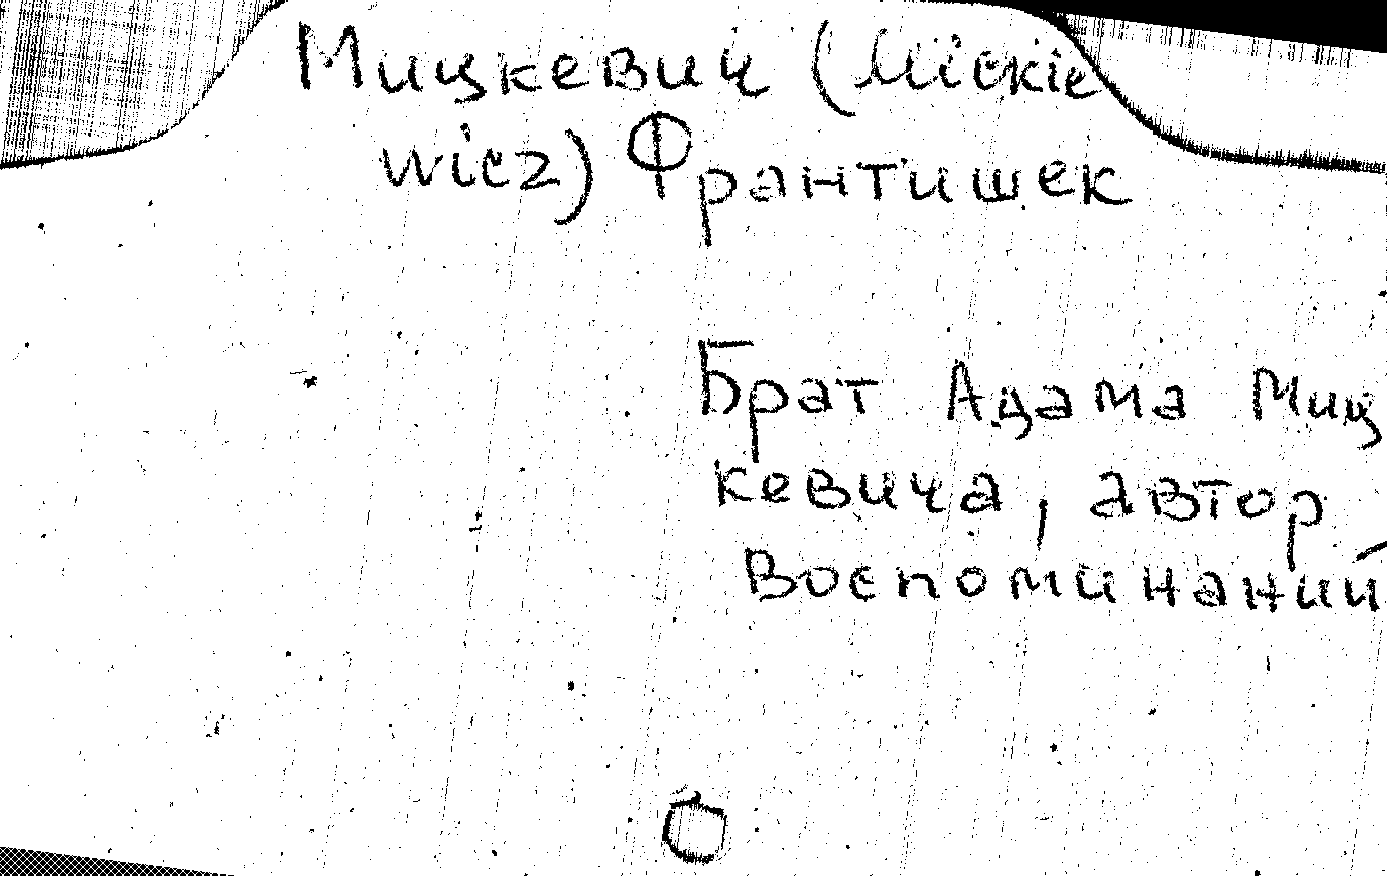 Мицкевич (Mickie
wicz) Франтишек
Брат Адама Миц
кевича, автор
Воспоминаний